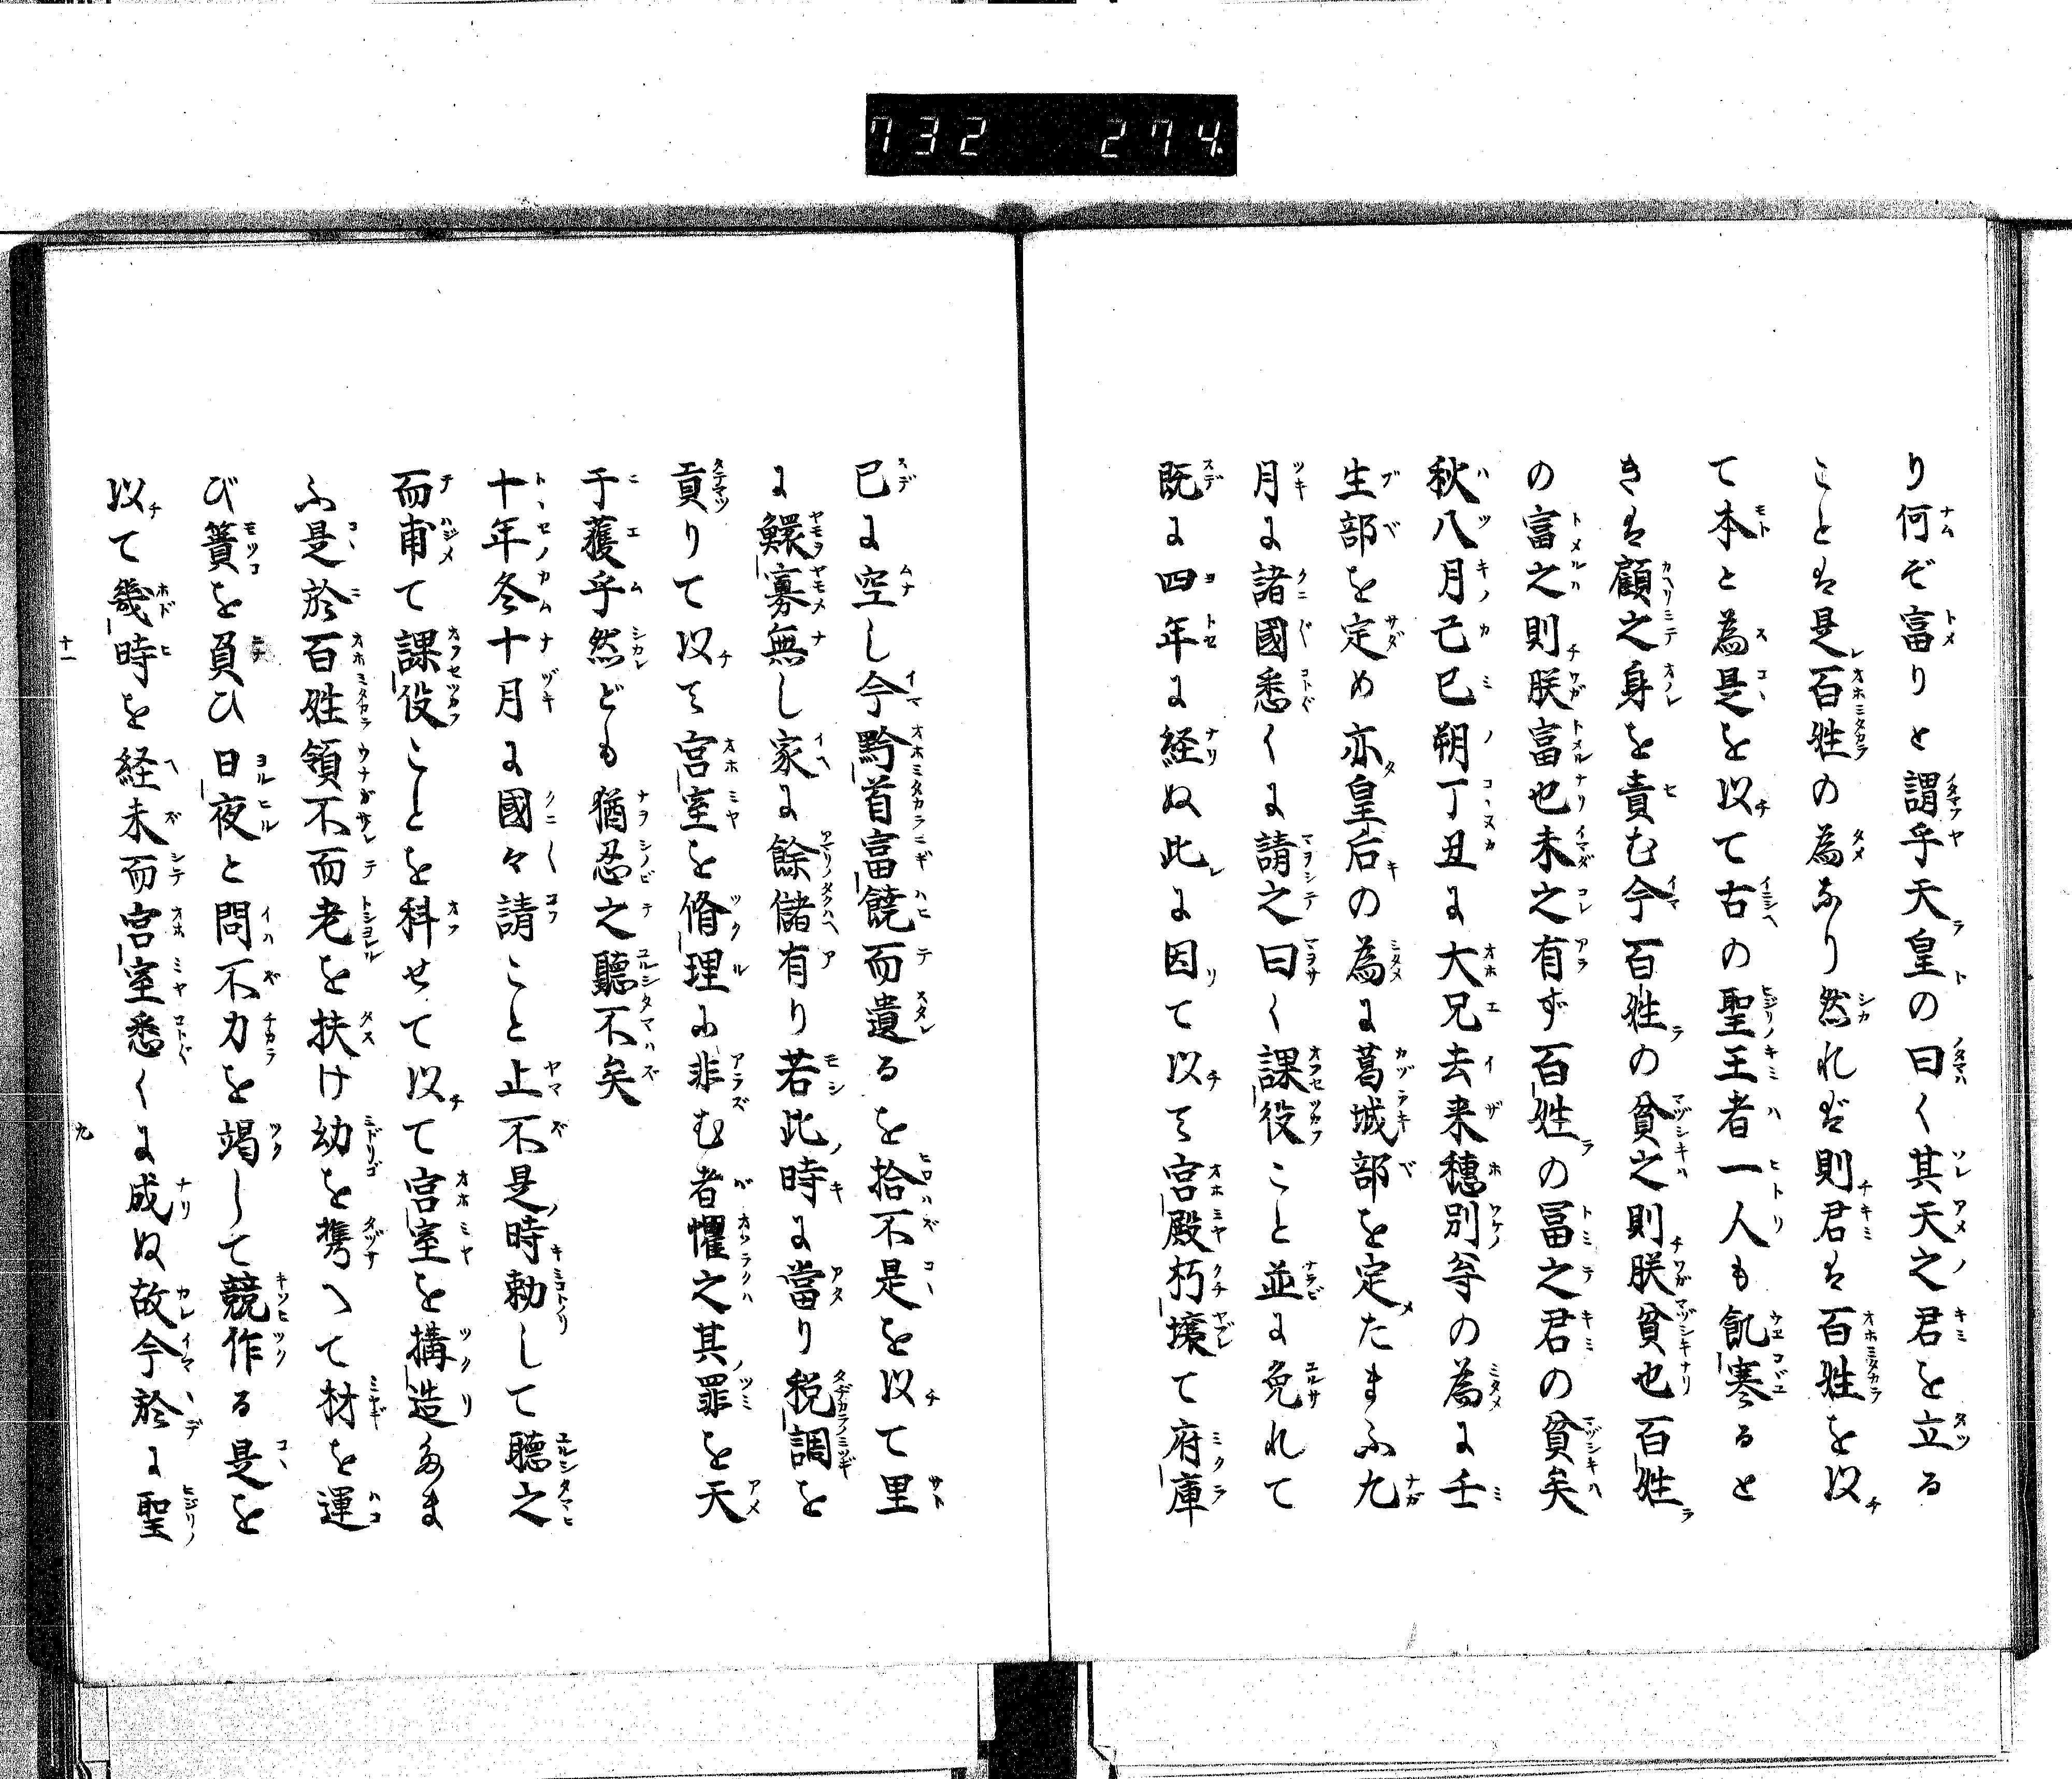 732 274
り何ぞ富りと謂乎天皇の曰く其天之君を立る
ことは是百姓の為なり然れば則君は百姓を以
て本と為是を以て古の聖王者一人も飢寒ると
きは顧之身を責む今百姓の貧之則朕貧也百姓
の富之則朕富也未之有ず百姓の冨之君の貧矣
秋八月己巳朔丁丑に大兄去来穂別等の為に壬
生部を定め亦皇后の為に葛城部を定たまふ九
月に諸國悉くに請之曰く課役こと並に免れて
既に四年に経ぬ此に因て以て宮殿朽壊て府庫
已に空し今黔首富饒而遺るを拾不是を以て里
に鰥寡無し家に餘儲有り若此時に當り税調を
貢りて以て宮室を脩理に非む者懼之其罪を天
于獲乎然ども猶忍之聽不矣
十年冬十月に國々請こと止不是時勅して聽之
而甫て課役ことを科せて以て宮室を搆造たま
ふ是於百姓領不而老を扶け幼を携へて材を運
び簣を負ひ日夜と問不力を竭して競作る是を
以て幾時を経未而宮室悉くに成ぬ故今於に聖
十一
九